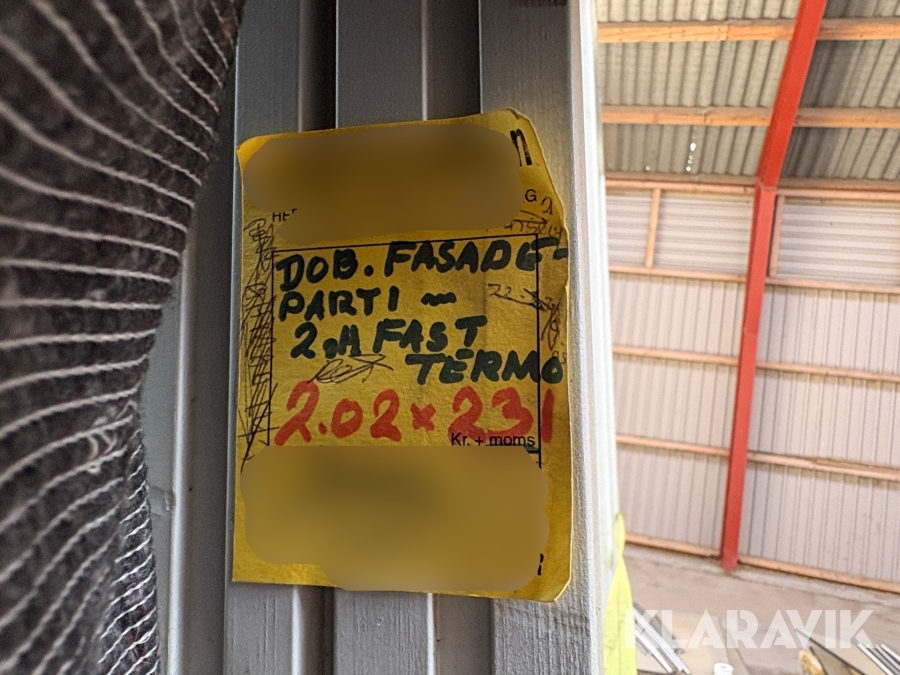 DOB. FASADE-
PARTI ~
2.H FAST
TERMO
2.02 x 231
Kr. + moms
KLARAVIK